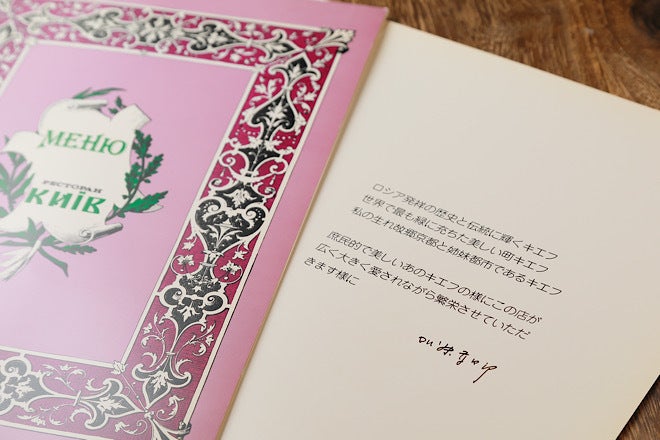 МЕНЮ
РЕСТОРАН
КИЇВ
ロシア発祥の歴史と伝統に輝くキエフ
世界で最も緑に充ちた美しい町キエフ
私の生れ故郷京都と姉妹都市であるキエフ
庶民的で美しいあのキエフの様にこの店が
広く大きく愛されながら繁栄させていただ
きます様に